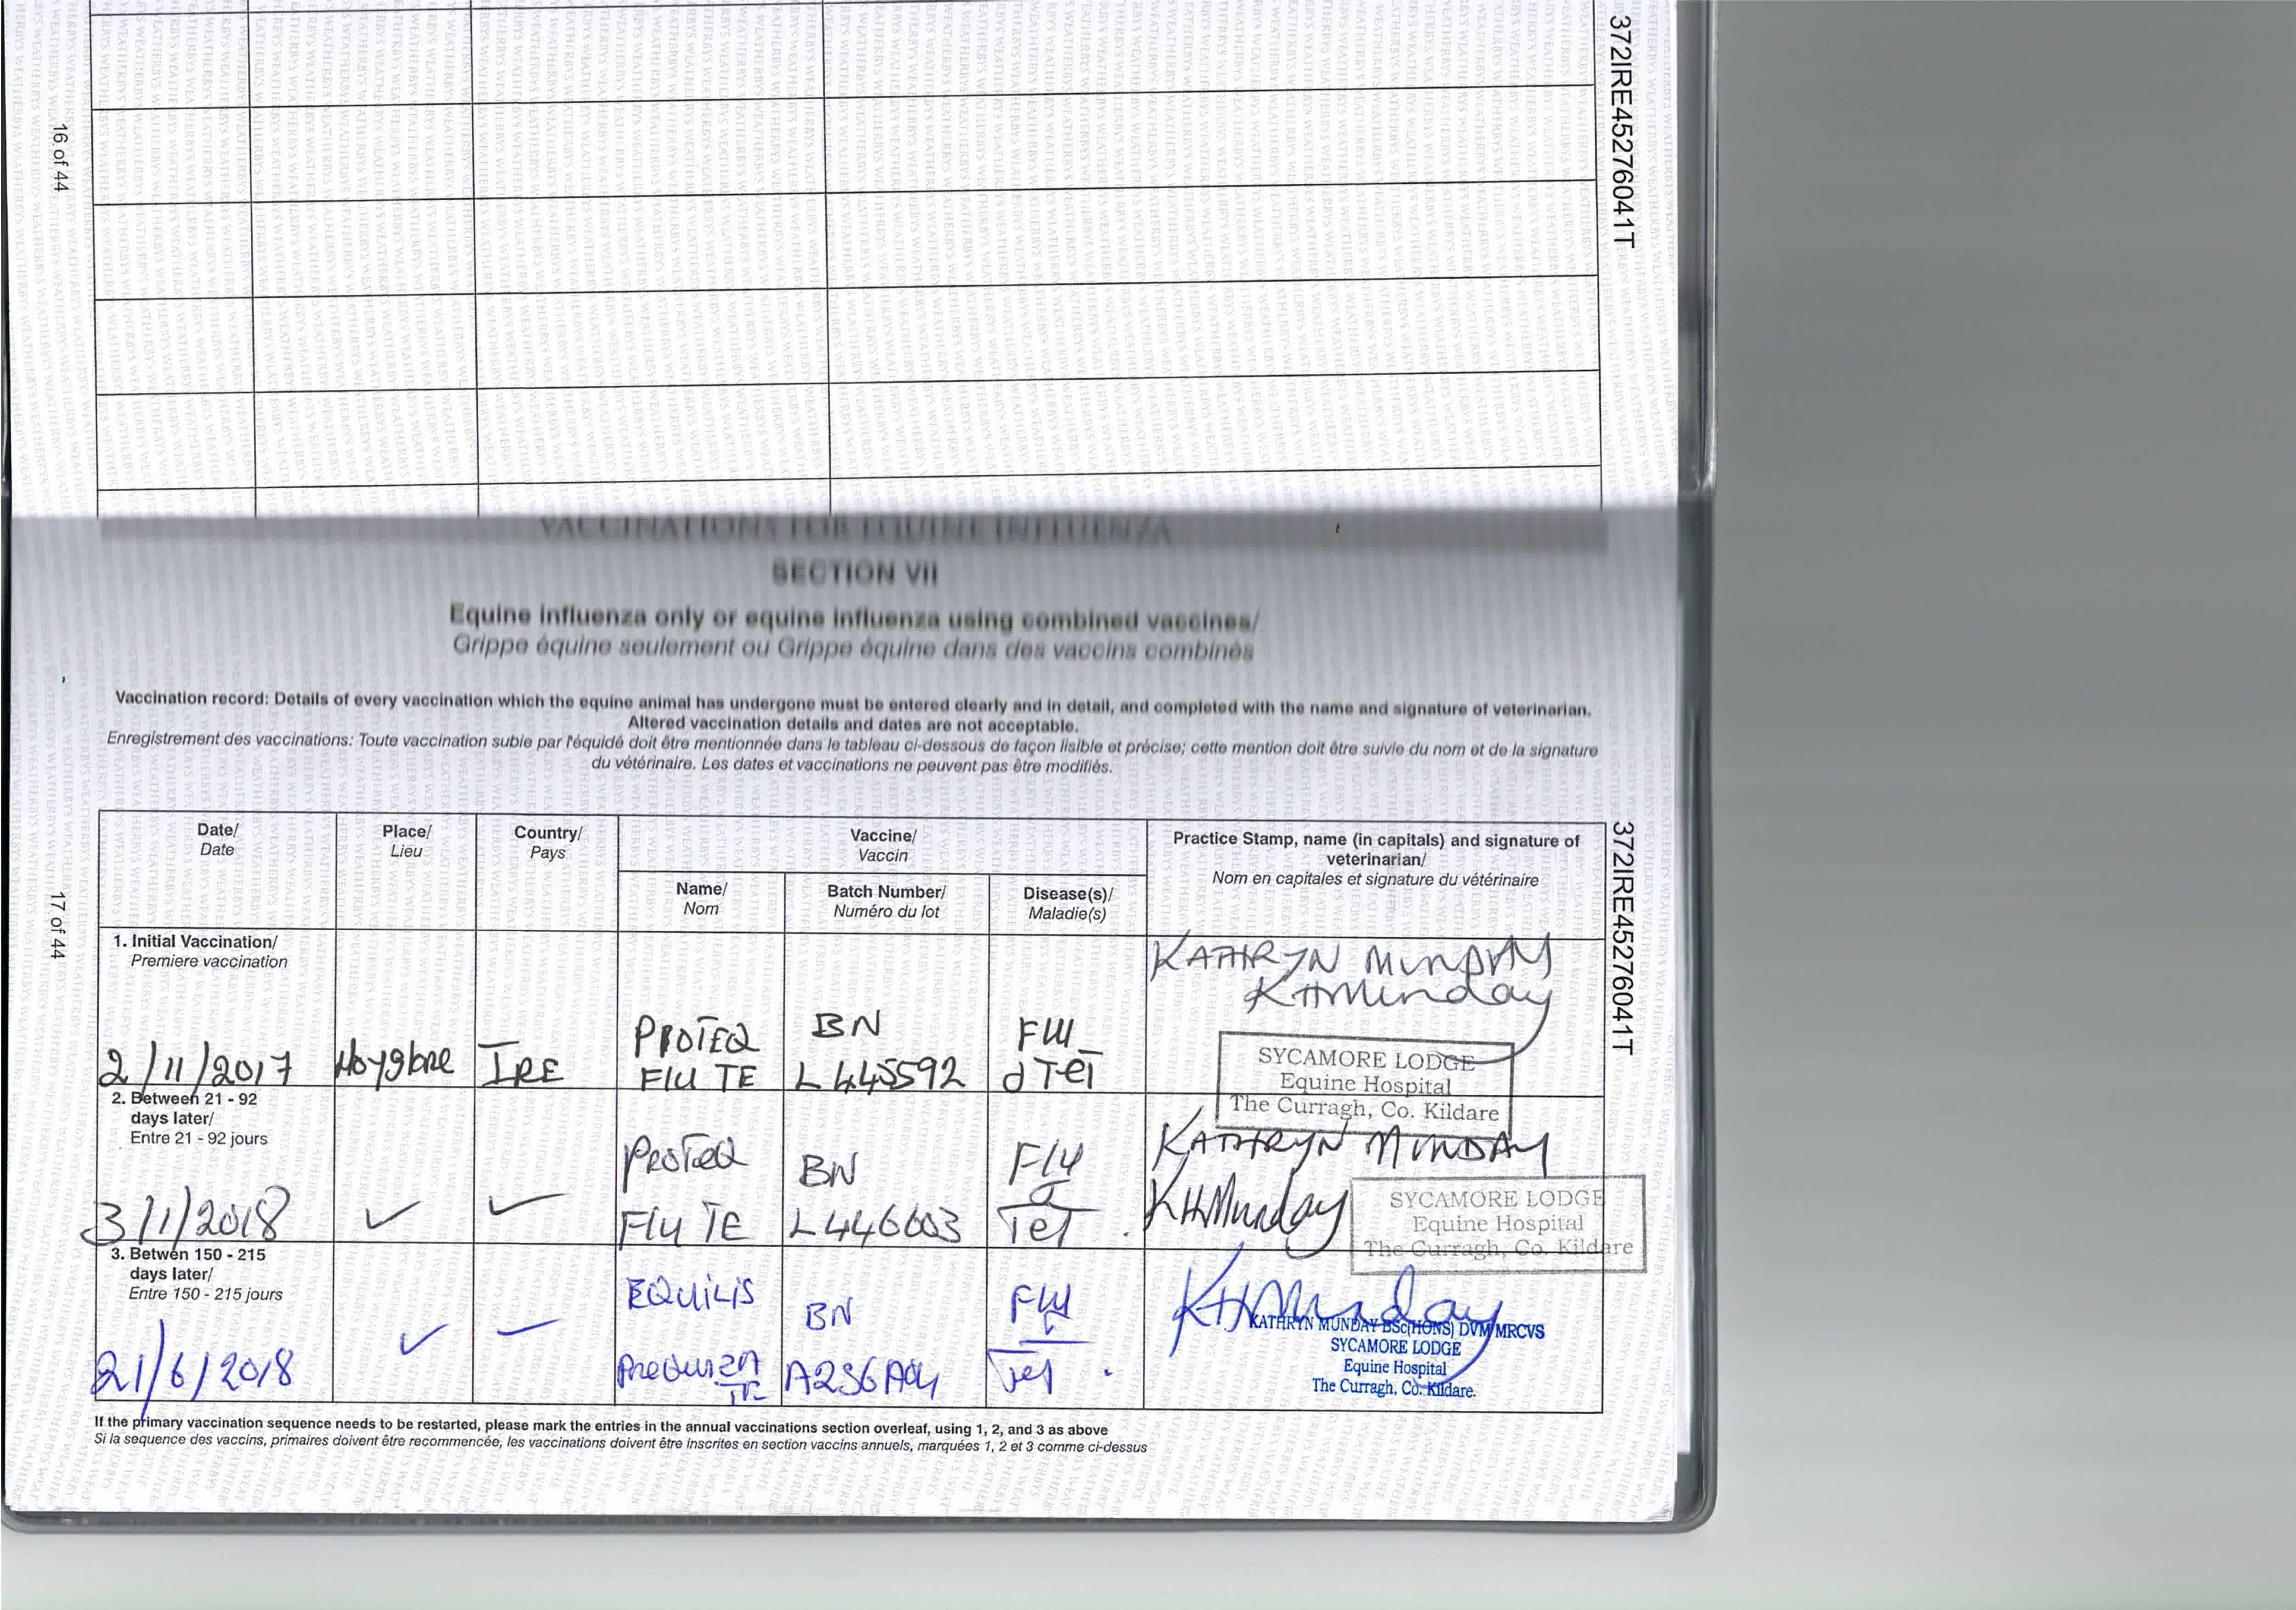 16 of 44
372IRE45276041T
VACCINATIONS FOR EQUINE INFLUENZA
SECTION VII
Equine influenza only or equine influenza using combined vaccines/
Grippe équine seulement ou Grippe équine dans des vaccins combinés
Vaccination record: Details of every vaccination which the equine animal has undergone must be entered clearly and in detail, and completed with the name and signature of veterinarian.
Altered vaccination details and dates are not acceptable.
Enregistrement des vaccinations: Toute vaccination subie par l'équidé doit être mentionnée dans le tableau ci-dessous de façon lisible et précise; cette mention doit être suivie du nom et de la signature
du vétérinaire. Les dates et vaccinations ne peuvent pas être modifiés.
17 of 44
372IRE45276041T
Date/
Date
Place/
Lieu
Country/
Pays
Vaccine/
Vaccin
Name/
Nom
Batch Number/
Numéro du lot
Disease(s)/
Maladie(s)
Practice Stamp, name (in capitals) and signature of
veterinarian/
Nom en capitales et signature du vétérinaire
1. Initial Vaccination/
Premiere vaccination
2/11/2017
IRE
PROTEQ
FLU TE
BN
L445592
FLU
KATHRYN MUNDAY
KHMunday
SYCAMORE LODGE
Equine Hospital
The Curragh, Co. Kildare
2. Between 21 - 92
days later/
Entre 21 - 92 jours
3/1/2018
✓
✓
PROTEQ
FLU TE
BN
L446603
Flu
Tet
KATHRYN MUNDAY
KHMunday
SYCAMORE LODGE
Equine Hospital
The Curragh, Co. Kildare
3. Betwen 150 - 215
days later/
Entre 150 - 215 jours
21/6/2018
✓
✓
EQUILIS
PREQUENZA
TE
BN
A236A04
FLU
Tet
KHMunday
KATHRYN MUNDAY BSc(HONS) DVM MRCVS
SYCAMORE LODGE
Equine Hospital
The Curragh, Co. Kildare.
If the primary vaccination sequence needs to be restarted, please mark the entries in the annual vaccinations section overleaf, using 1, 2, and 3 as above
Si la sequence des vaccins, primaires doivent être recommencée, les vaccinations doivent être inscrites en section vaccins annuels, marquées 1, 2 et 3 comme ci-dessus